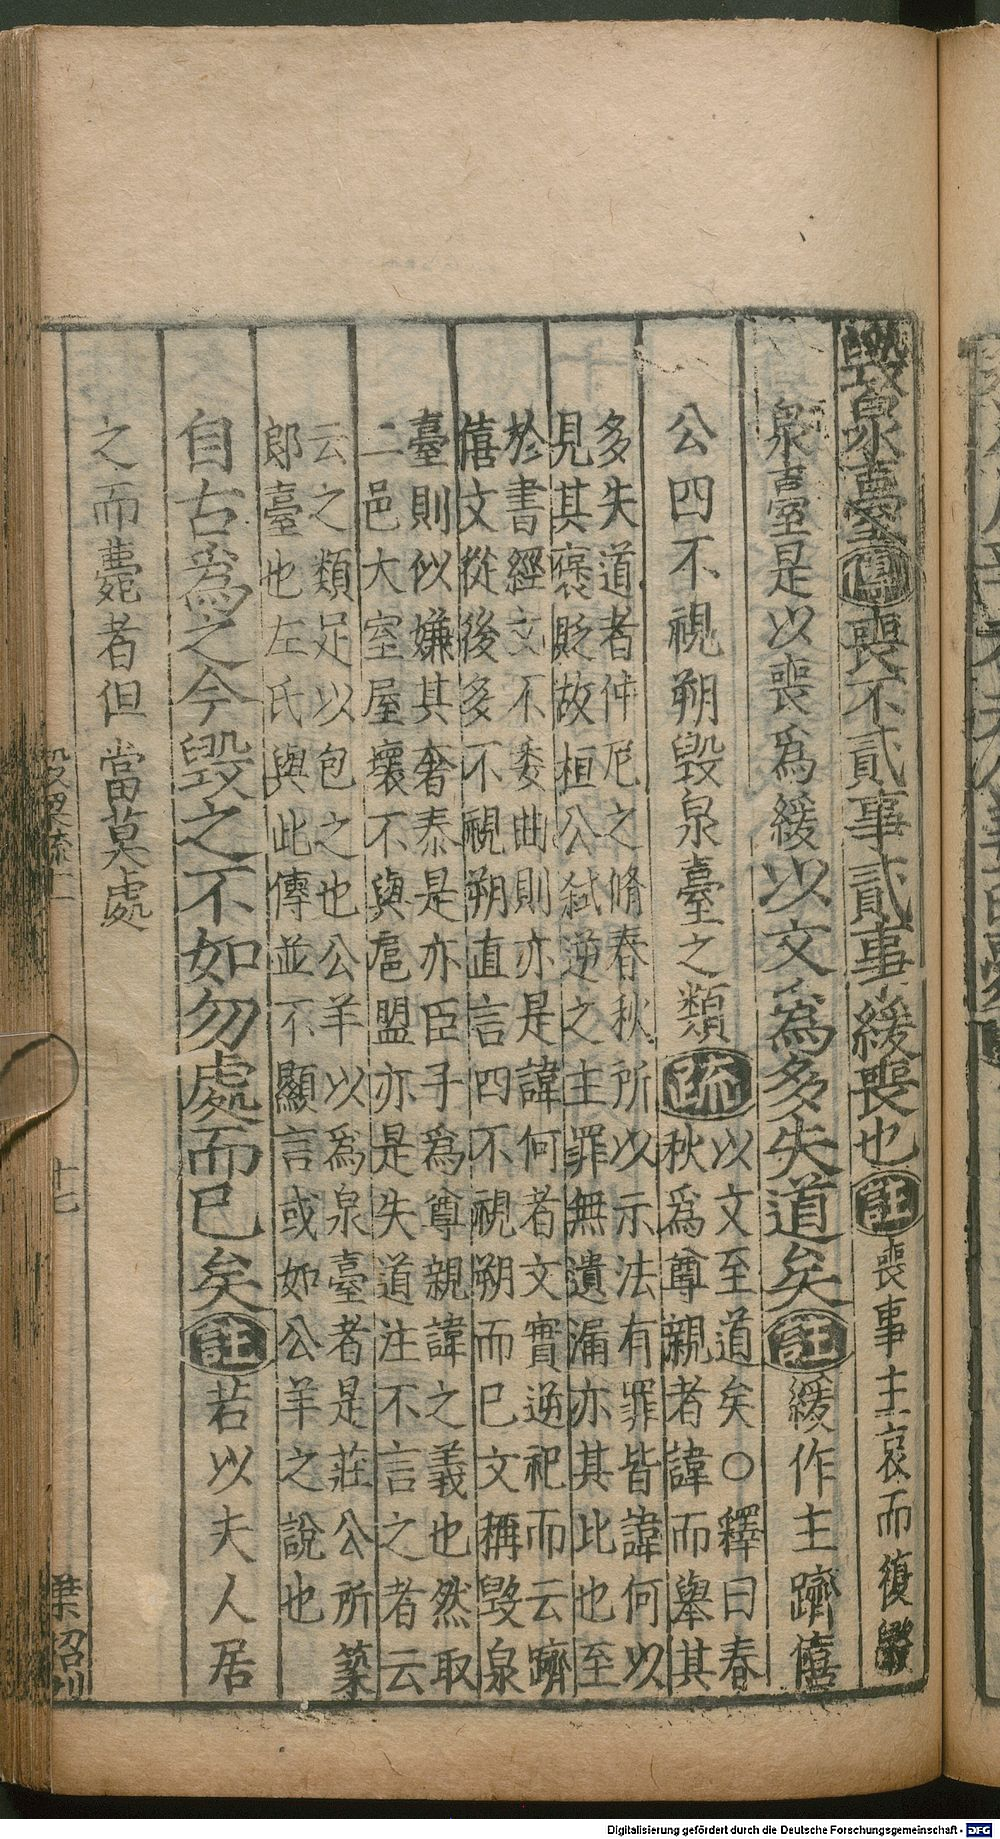 毀泉臺傳喪不貳事貳事緩喪也註喪事主哀而復毀
泉臺是以喪爲緩以文爲多失道矣註緩作主躋僖
公四不視朔毀泉臺之類疏以文至道矣○釋曰春
秋爲尊親者諱而舉其
多失道者仲尼之脩春秋所以示法有罪皆諱何以
見其褒貶故桓公弑逆之主罪無遺漏亦其比也至
於書經文不委曲則亦是諱何者文實逆祀而云躋
僖文從後多不視朔直言四不視朔而已文稱毀泉
臺則似嫌其奢泰是亦臣子爲尊親諱之義也然取
二邑大室屋壞不與扈盟亦是失道注不言之者云
云之類足以包之也公羊以爲泉臺者是莊公所築
郎臺也左氏與此傳並不顯言或如公羊之說也
自古爲之今毀之不如勿處而已矣註若以夫人居
之而薨者但當莫處
十七
Digitalisierung gefördert durch die Deutsche Forschungsgemeinschaft - DFG